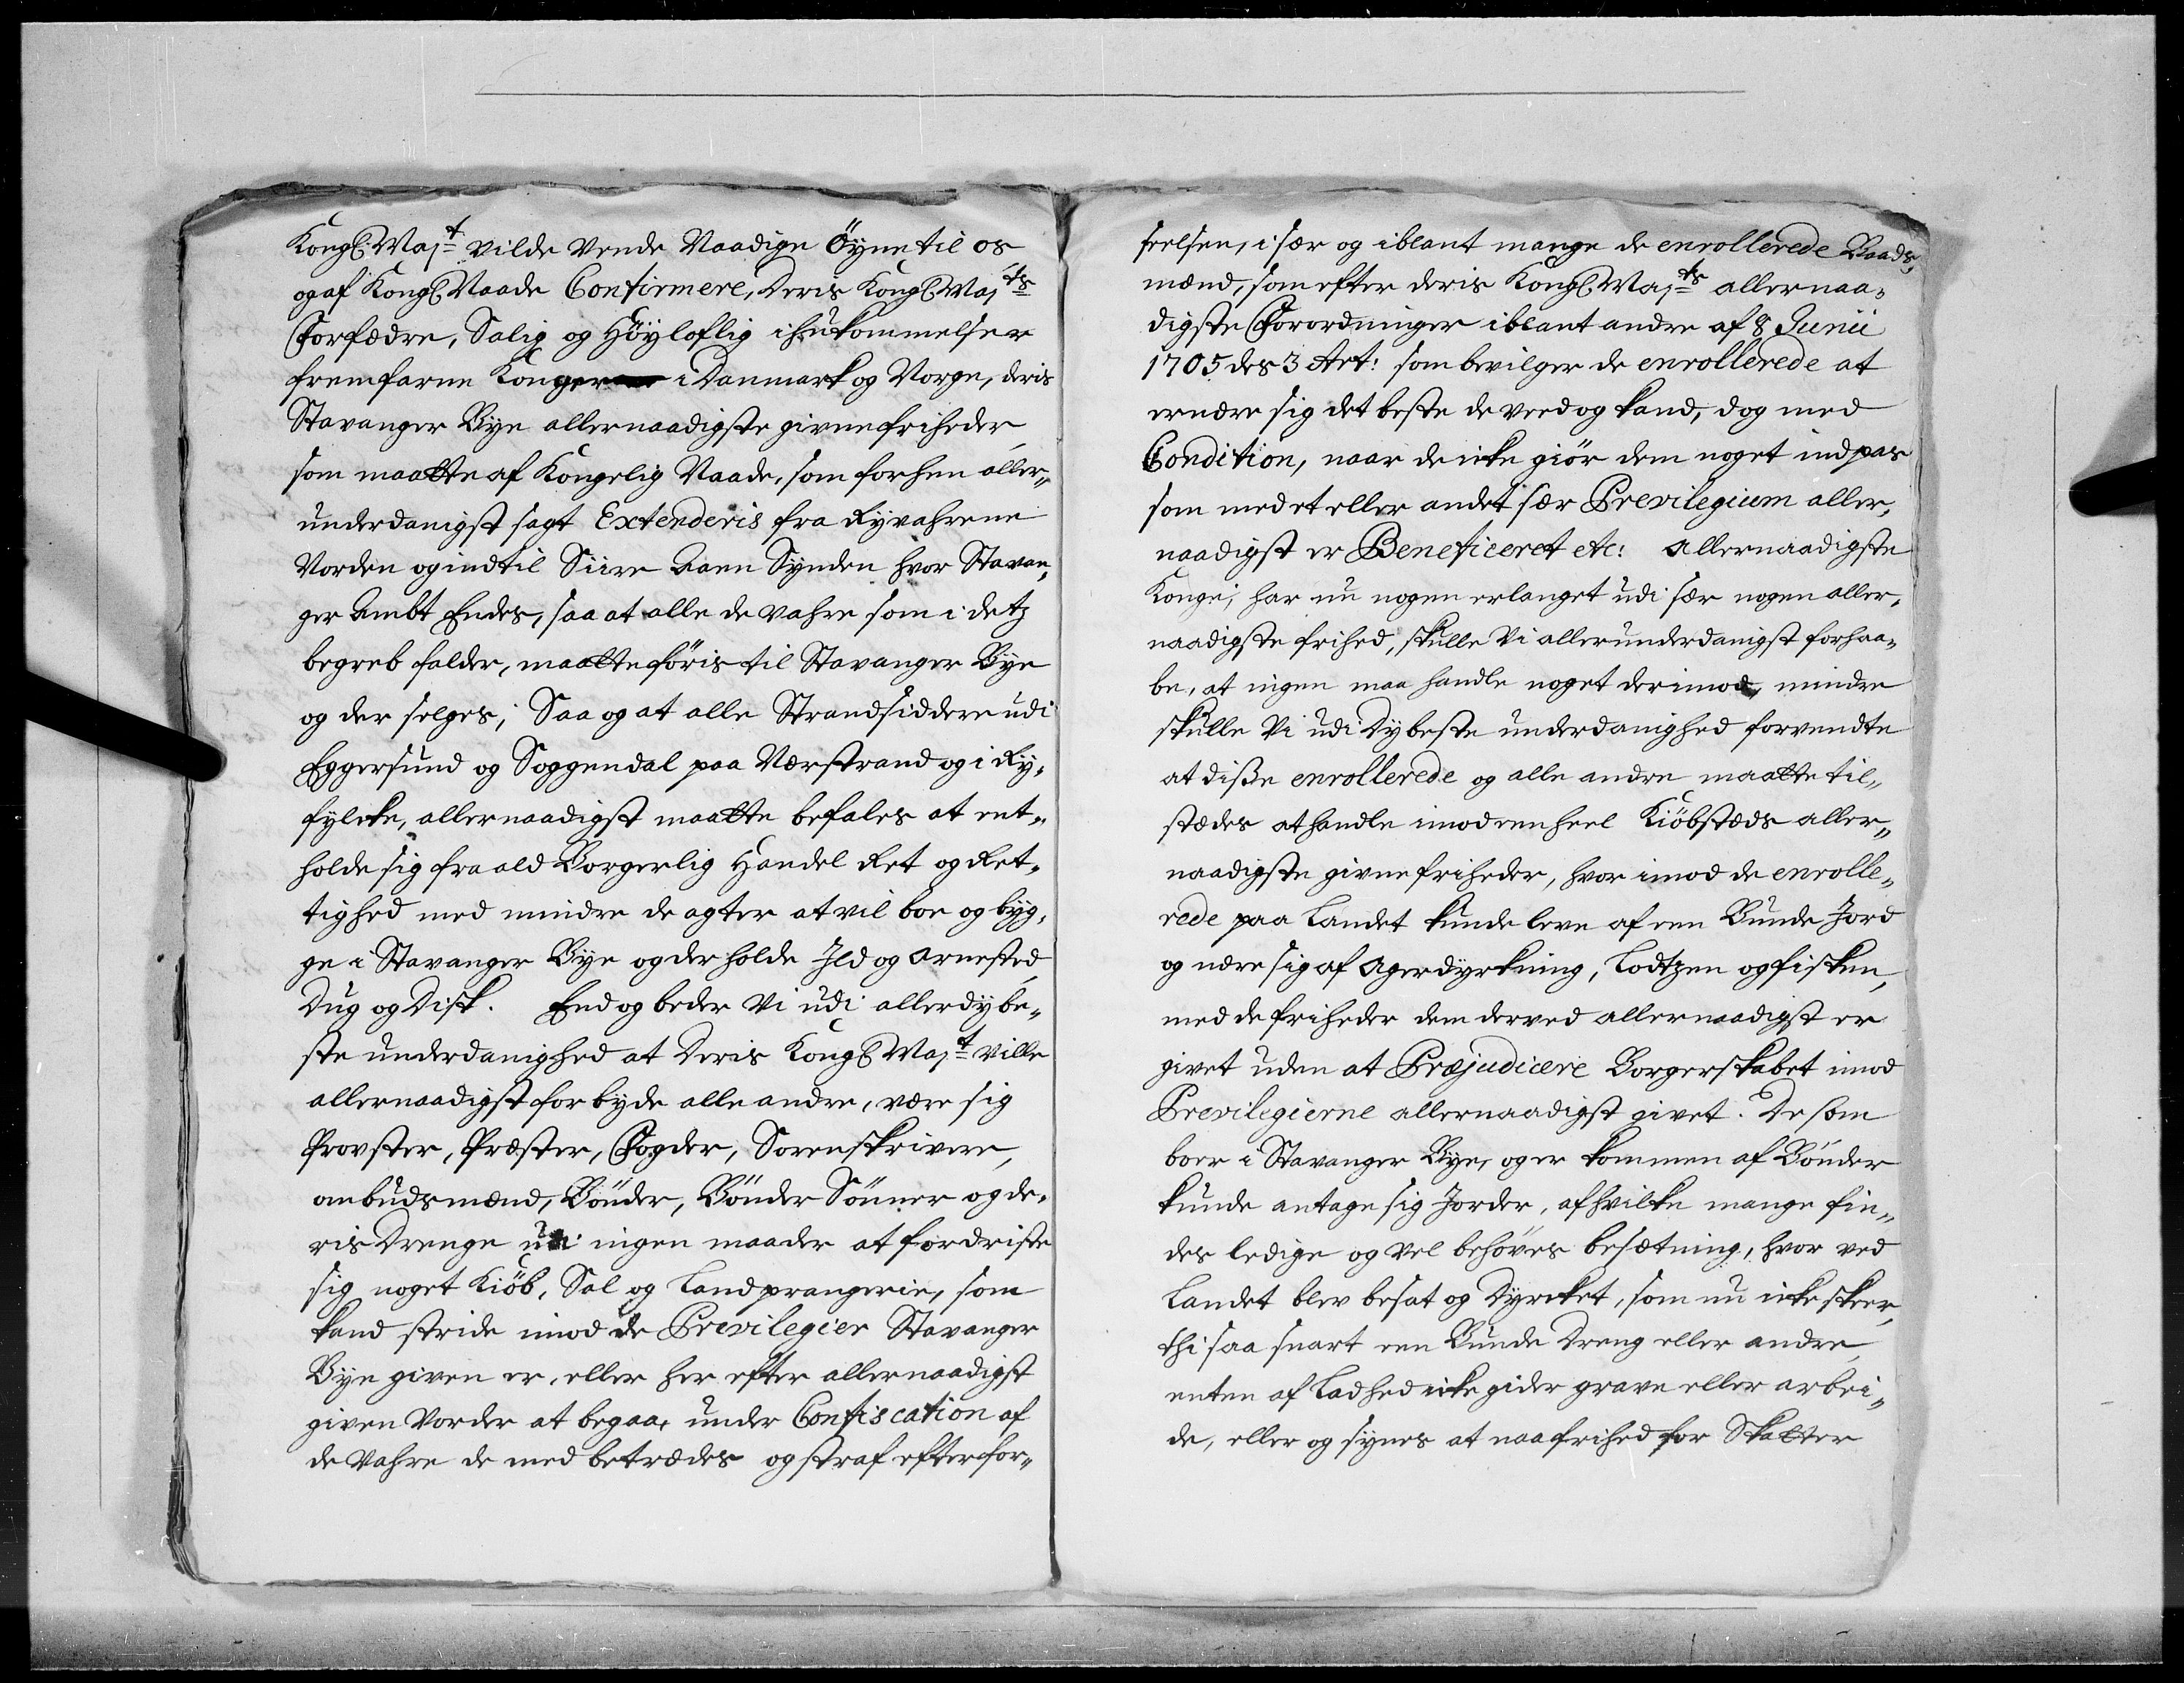 Kongl: Maj:t vilde vende Naadige Öyne til os
og af Kongl: Naade Confirmere, Deris Kongl: Maj:ts
Forfædre, Salig og Höyloflig ihukommelser
fremfarne Konger i Danmark og Norge, deris
Stavanger Bye allernaadigste givne friheder,
som maatte af Kongelig Naade, som forhen aller„
underdanigst sagt Extenderis fra Ryvahrene
Norden og indtil Siire Aaen Synden hvor Stavan„
ger Ambt Endes, saa at alle de vahre som i detz
begreb falder, maatte föris til Stavanger Bye
og der selges; Saa og at alle Strandsiddere udi
Eggersund og Soggendal paa Nærstrand og i Ry„
fylcke, allernaadigst maatte befales at ent„
holde sig fra ald Borgerlig Handel Ret og Ret„
tighed med mindre de agter at vil boe og byg„
ge i Stavanger Bye og der holde Ild og Arnested,
Dug og Disk. End og beder Vi udi allerdybe„
ste underdanighed at Deris Kongl: Maj:t ville
allernaadigst forbyde alle andre, være sig
Provster, Præster, Fogder, Sorenskrivere,
ombudsmænd, Bönder, Bönder Sönner og de„
ris Drenge udi ingen maader at fordriste
sig noget Kiöb, Sal og Landprangerie, som
kand stride imod de Previlegier Stavanger
Bye given er, eller her efter allernaadigst
given vorder at begaa, under Confiscation af
de vahre de med betrædes og straf efter for„
seelsen, i sær og iblant mange de enrollerede Baads„
mænd, som efter deris Kongl: Maj:ts allernaa„
digste Forordninger iblant andre af 8 Junii
1705 des 3 Art: som bevilger de enrollerede at
ernære sig det beste de veed og kand, dog med
Condition, naar de icke giör dem noget indpas
som med et eller andet sær Previlegium aller„
naadigst er Beneficeret etc: Allernaadigste
Konge, har nu nogen erlanget udi sær nogen aller„
naadigste frihed, skulle Vi allerunderdanigst forhaa„
be, at ingen maa handle noget derimod, mindre
skulle Vi udi Dybeste underdanighed forvendte
at disse enrollerede og alle andre maatte til„
stædes at handle imod en heel Kiöbstæds aller„
naadigste givne friheder, hvor imod de enrolle„
rede paa Landet kunde leve af een Bunde Jord
og nære sig af Agerdyrkning, Lodtzen og fisken,
med de friheder dem derved allernaadigst er
givet uden at Præjudicere Borgerskabet imod
Previlegierne allernaadigst givet. De som
boer i Stavanger Bye, og er kommen af Bönder
kunde antage sig Jorder, af hvilke mange fin„
des ledige og vel behöves besætning, hvor ved
Landet blev besat og Dyrcket, som nu icke skeer,
thi saa snart een Bunde Dreng eller andre,
enten af Ladhed icke gider grave eller arbei„
de, eller og synes at naa frihed for Skatter